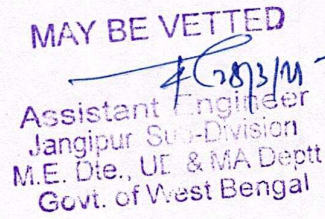 MAY BE VETTED
28/3/21
Assistant Engineer
Jangipur Sub-Division
M.E. Dte., UD & MA Deptt
Govt. of West Bengal